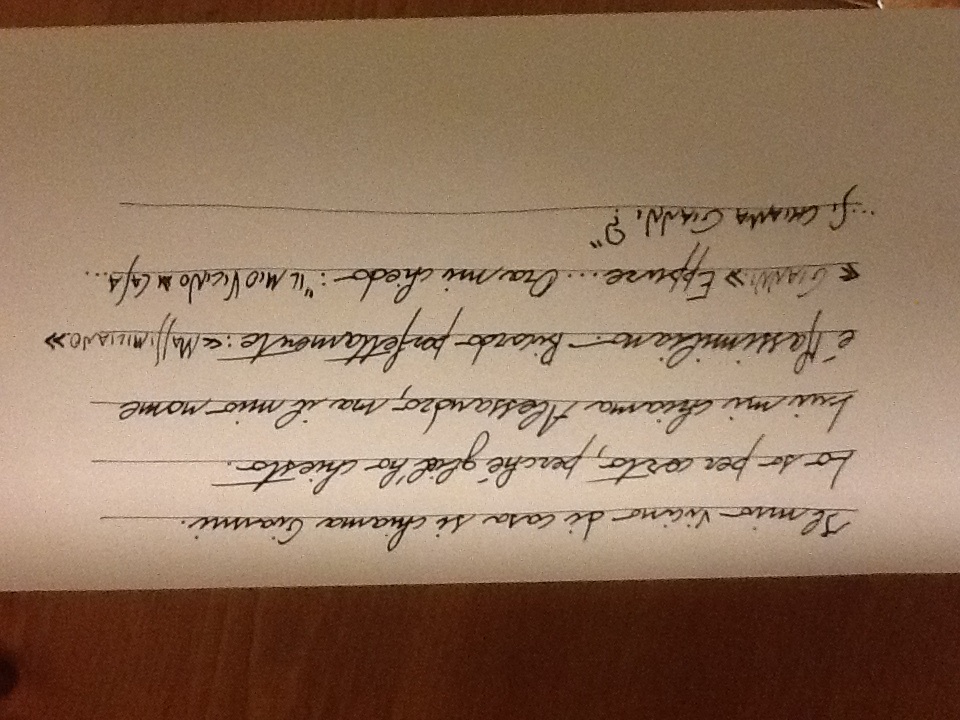 Il mio vicino di casa si chiama Gianni.
Lo so per certo, perché gliel'ho chiesto.
Lui mi chiama Alessandro, ma il mio nome
é Massimiliano. Ricordo perfettamente: «MASSIMILIANO.»
« GIANNI.» Eppure... Ora mi chiedo: "IL MIO VICINO DI CASA...
...SI CHIAMA GIANNI?"